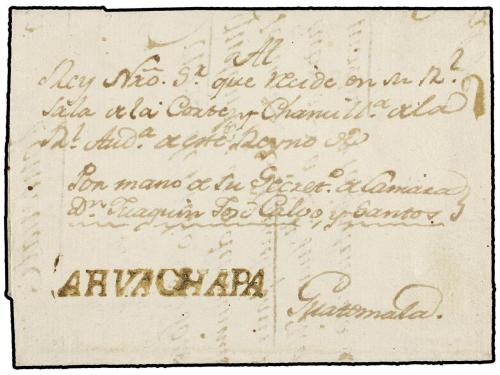 Al
Rey Nrõ. Sr. que recide en su Rl.
Sala de la Corte y Chancillª. de la
Rl. Audª. de este Reyno &ª
Por mano de su Secretº. de Camara
Dn. Juaquin Josẽ Calvo, y Santos
AHVACHAPA
Guatemala.